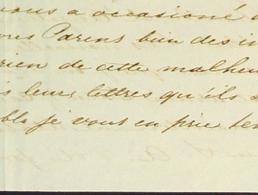 vous a occasioné
Parens bien des in
rien de cette malheu
leurs lettres qu'ils
ble je vous en prie